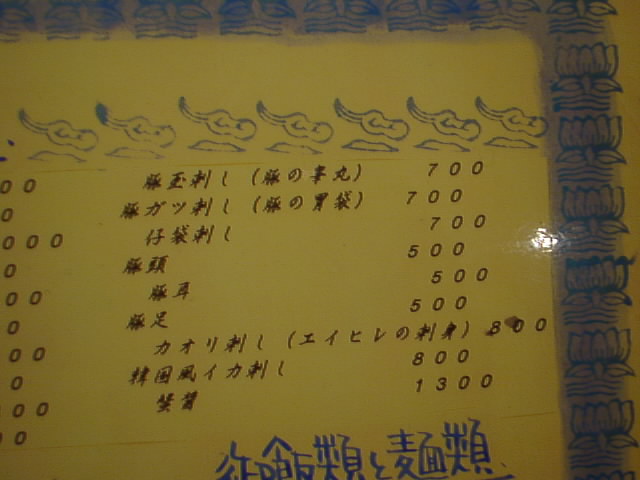 00 豚玉刺し(豚の睾丸) 700
0 豚ガツ刺し(豚の胃袋) 700
000 仔袋刺し 700
0 豚頭 500
00 豚耳 500
0 豚足 500
00 カオリ刺し(エイヒレの刺身) 800
0 韓国風イカ刺し 800
00 蟹醤 1300
00
御飯類と麺類